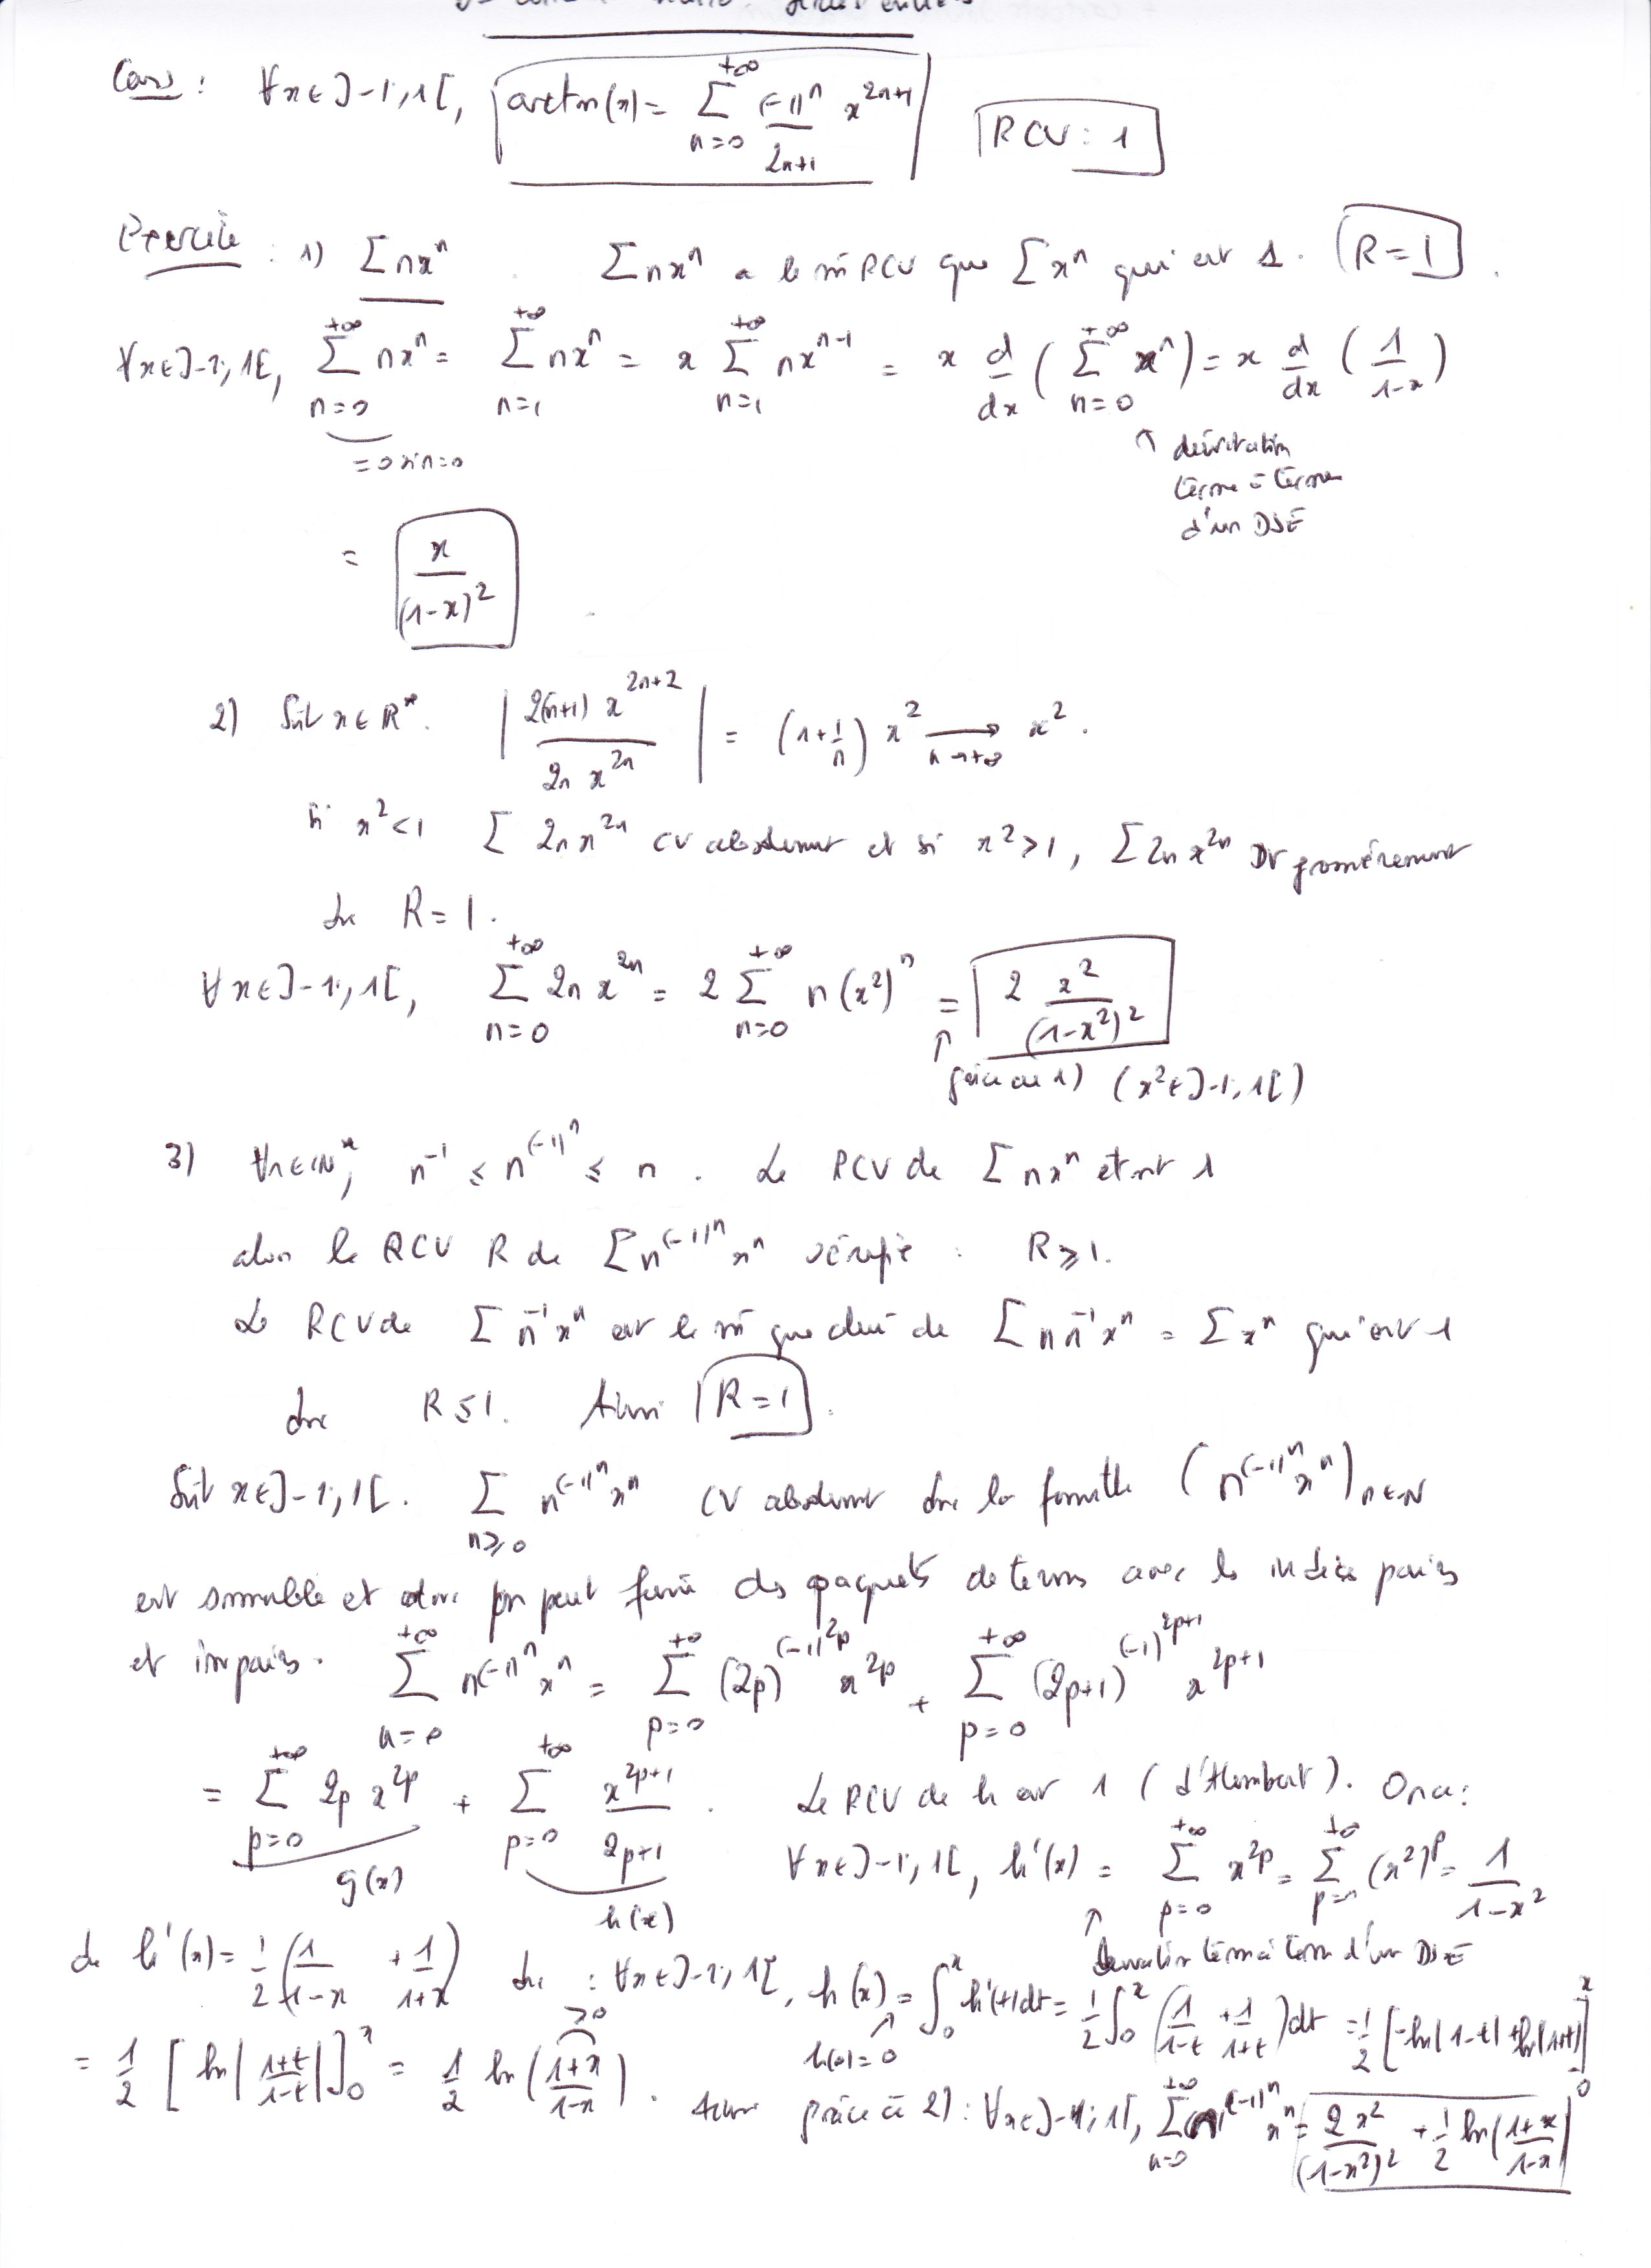 séries entières
Cours : ∀x∈]-1;1[, arctan(x) = Σ_{n=0}^{+∞} (-1)^n/(2n+1) x^{2n+1} RCV : 1
Exercice : 1) Σnx^n . Σnx^n a le m̂ RCV que Σx^n qui est 1. R=1 .
∀x∈]-1;1[, Σ_{n=0}^{+∞} nx^n = Σ_{n=1}^{+∞} nx^n = x Σ_{n=1}^{+∞} nx^{n-1} = x d/dx ( Σ_{n=0}^{+∞} x^n ) = x d/dx ( 1/(1-x) )
=0 si n=0
↑ dérivation
terme à terme
d'un DSE
= x/(1-x)^2
2) Soit x∈R*. | 2(n+1) x^{2n+2} / 2n x^{2n} | = (1+1/n) x^2 →_{n→+∞} x^2 .
Si x^2<1 Σ 2n x^{2n} CV absolument et si x^2>1, Σ2n x^{2n} DV grossièrement
donc R = 1 .
∀x∈]-1;1[, Σ_{n=0}^{+∞} 2n x^{2n} = 2 Σ_{n=0}^{+∞} n(x^2)^n = 2 x^2/(1-x^2)^2
↑ grâce au 1) (x^2∈]-1;1[)
3) ∀n∈N*, n^{-1} ≤ n^{(-1)^n} ≤ n . Le RCV de Σnx^n étant 1
alors le RCV R de Σn^{(-1)^n} x^n vérifie : R⩾1.
Le RCV de Σ n^{-1}x^n est le m̂ que celui de Σ n n^{-1}x^n = Σx^n qui est 1
donc R≤1. Ainsi R=1 .
Soit x∈]-1;1[. Σ_{n⩾0} n^{(-1)^n} x^n CV absolument donc la famille (n^{(-1)^n} x^n)_{n∈N}
est sommable et donc on peut faire des paquets de termes avec les indices pairs
et impairs. Σ_{n=0}^{+∞} n^{(-1)^n} x^n = Σ_{p=0}^{+∞} (2p)^{(-1)^{2p}} x^{2p} + Σ_{p=0}^{+∞} (2p+1)^{(-1)^{2p+1}} x^{2p+1}
= Σ_{p=0}^{+∞} 2p x^{2p} + Σ_{p=0}^{+∞} x^{2p+1}/(2p+1) . Le RCV de h est 1 (d'Alembert). On a :
g(x) h(x) ∀x∈]-1;1[, h'(x) = Σ_{p=0}^{+∞} x^{2p} = Σ_{p=0}^{+∞} (x^2)^p = 1/(1-x^2)
↑ dérivation terme à terme d'un DSE
donc h'(x) = 1/2 (1/(1-x) + 1/(1+x)) donc : ∀x∈]-1;1[, h(x) = ∫_0^x h'(t)dt = 1/2 ∫_0^x (1/(1-t) + 1/(1+t))dt = 1/2 [-ln|1-t| + ln|1+t|]_0^x
h(0)=0
= 1/2 [ln|(1+t)/(1-t)|]_0^x = 1/2 ln((1+x)/(1-x)) . >0 Ainsi grâce à 2) : ∀x∈]-1;1[, Σ_{n=0}^{+∞} n^{(-1)^n} x^n = 2x^2/(1-x^2)^2 + 1/2 ln((1+x)/(1-x))